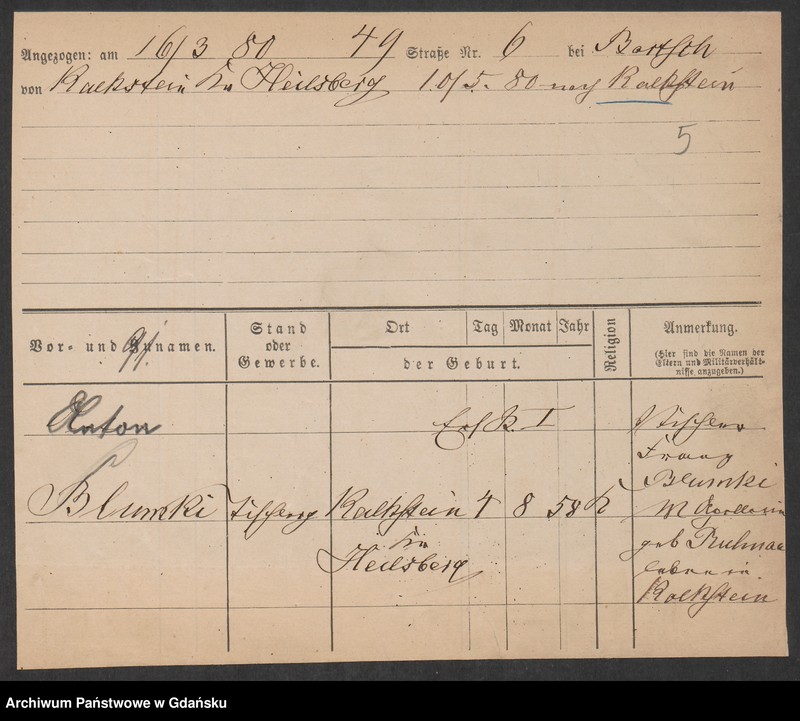 Angezogen: am 16/3 80 49 Straße Nr. 6 bei Bartsch
von Kalkstein Kr Heilsberg 10/5. 80 nach Kalkstein
5
Vor- und Zunamen.
Stand
oder
Gewerbe.
Ort Tag Monat Jahr
der Geburt.
Religion
Anmerkung.
(Hier sind die Namen der
Eltern und Militärverhält-
nisse anzugeben.)
Anton
Ers R. I
Tischler
Franz
Blumki
Blumki Tischlerg Kalkstein 4 8 58 k
Kr
Heilsberg
geb Ruhnau
leben in
Kalkstein
Archiwum Państwowe w Gdańsku